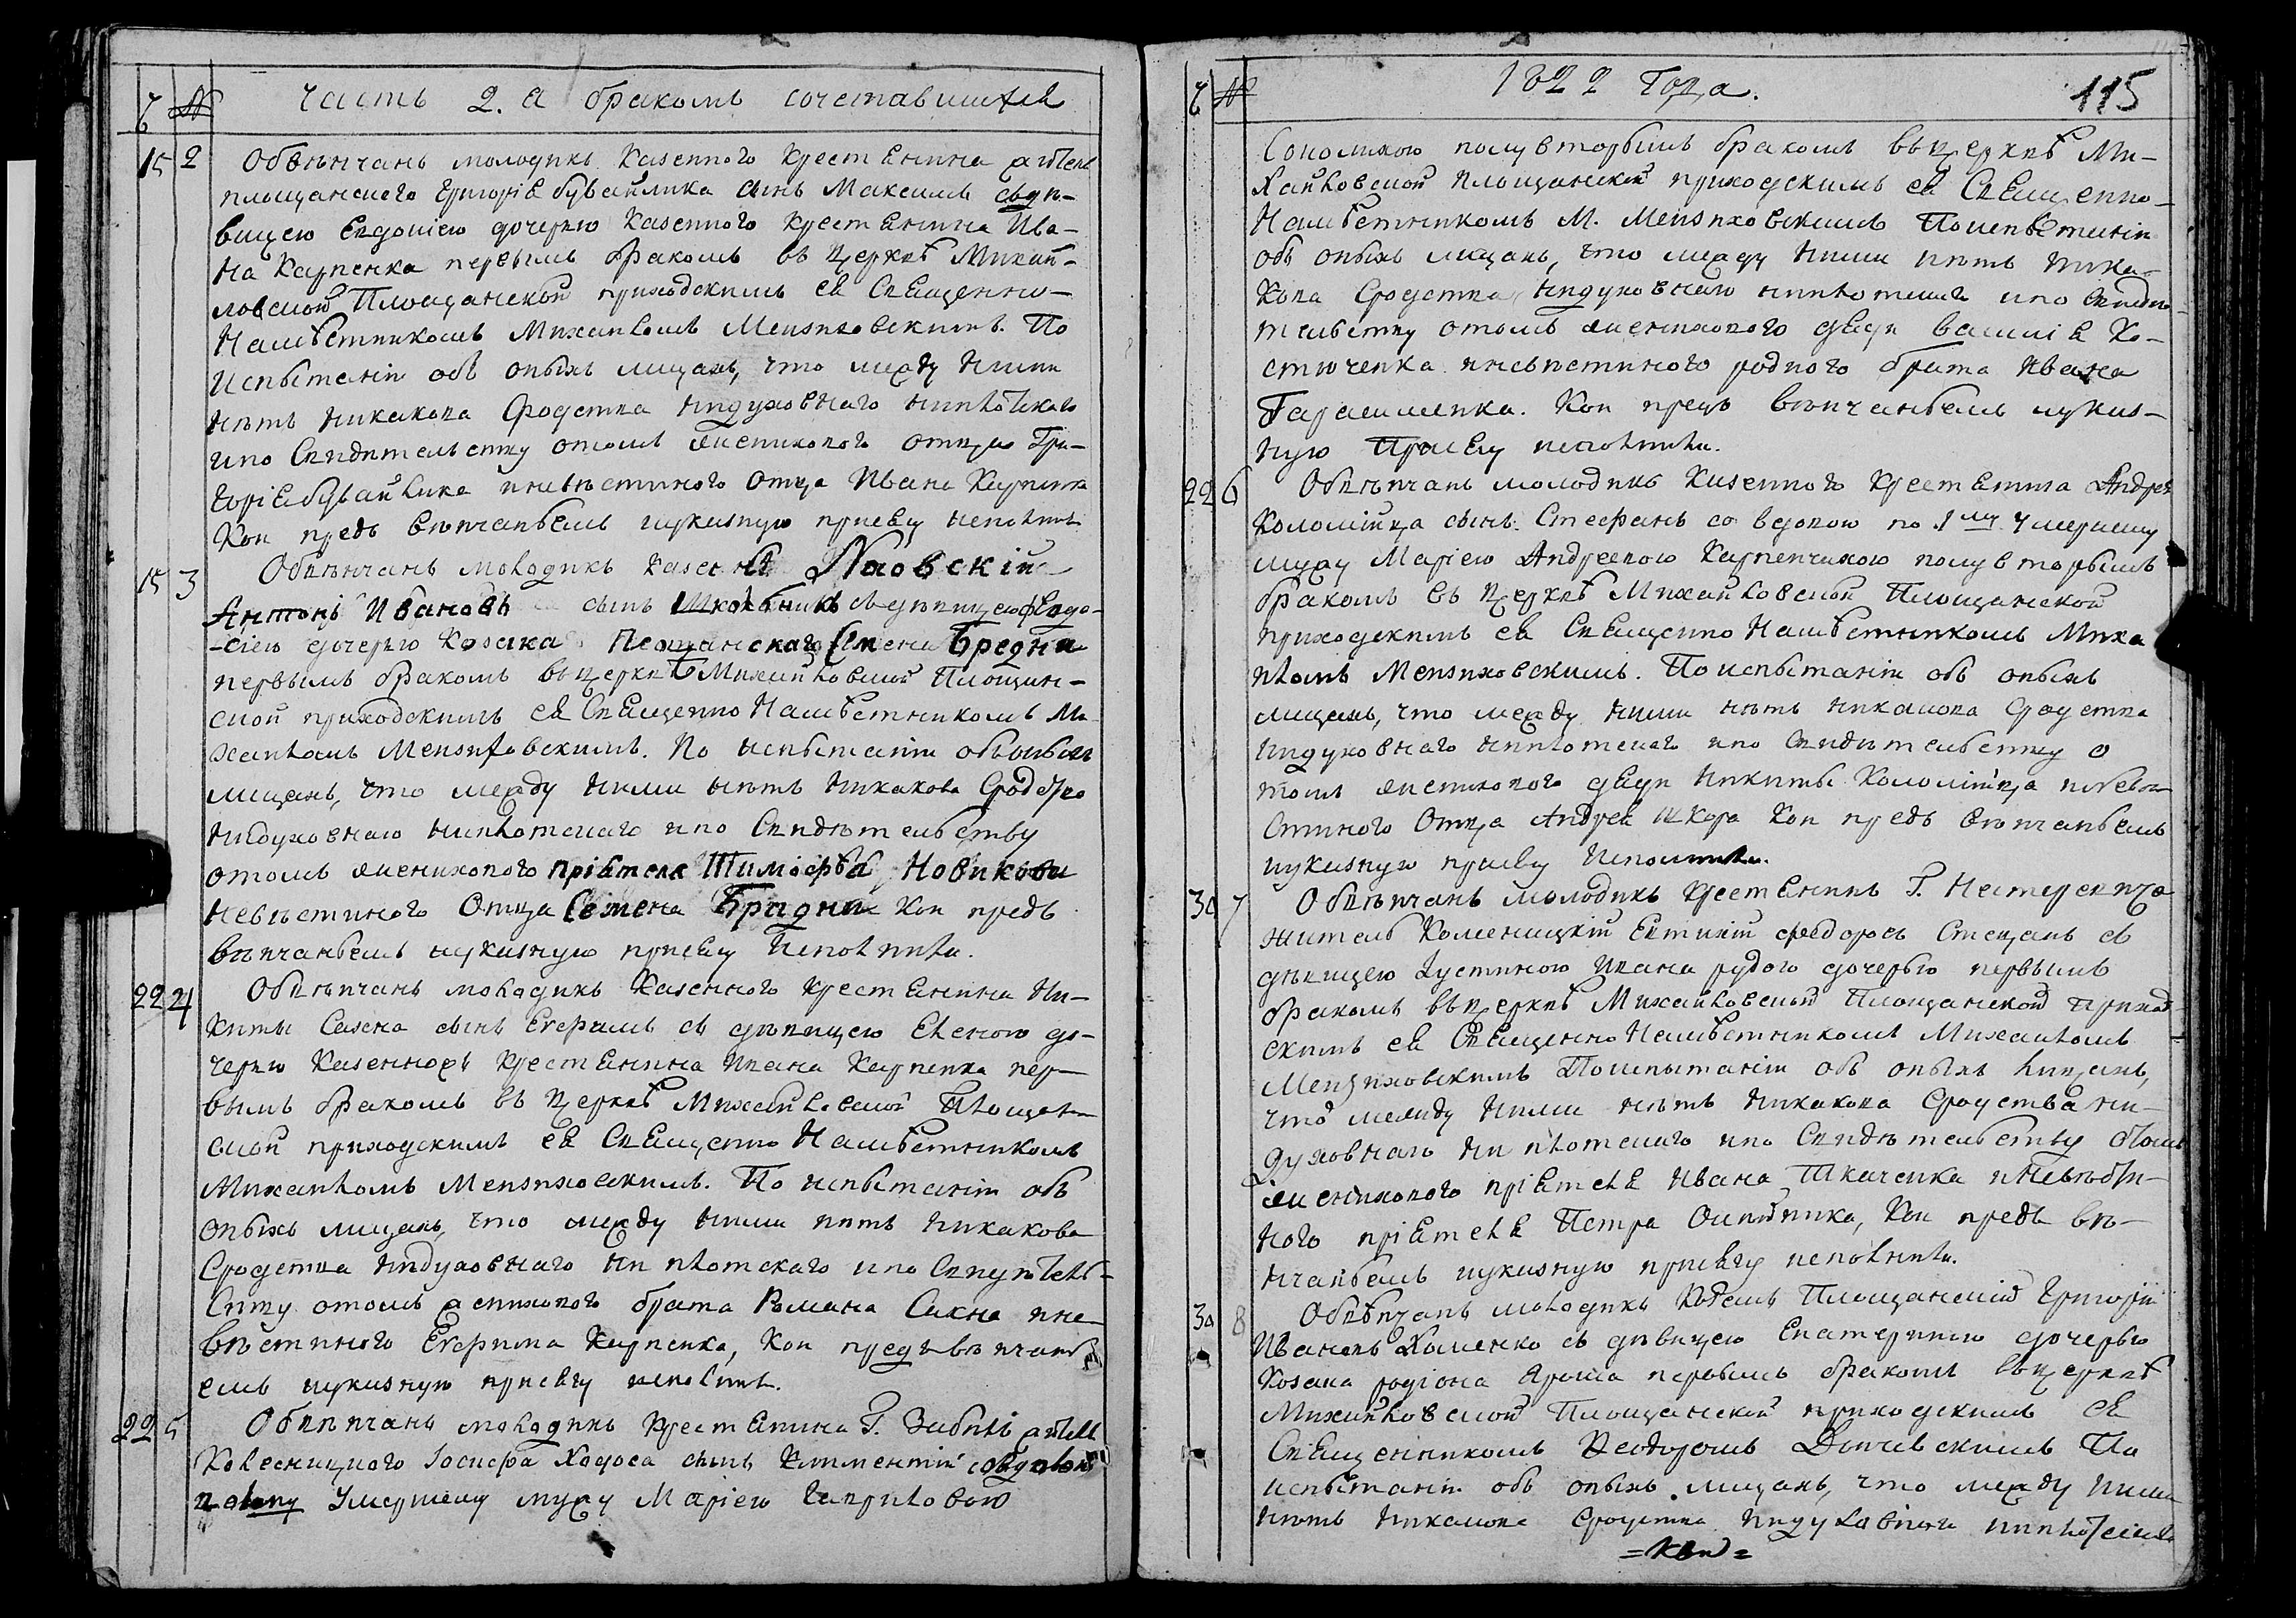 Ч № Часть 2. а бракомъ сочетавшихся
15 2 Обвѣнчанъ молодикъ казенного крестянина жителя
площанского Григорія бувайлика сынъ Максимъ съ дѣ-
вицею Евдокіею дочерью казенного крестянина Ива-
на Карпенка первымъ бракомъ въ Церквѣ Михай-
ловской Площанской приходскимъ ея Священно-
Намѣстникомъ Михаиломъ Мензиховскимъ. По
испытаніи объ оныхъ лицахъ, что между ними
нѣтъ никакова Сродства нидуховнаго ниплотскаго
ипо Свидѣтельству отомъ женихового отца Гри-
горія бувайлика иневѣстиного отца Ивана Карпенка
Кои предъ вѣнчаніемъ иуказную присягу исполнили
15 3 Обвѣнчанъ молодикъ
Антонъ Ивановъ сынъ съ дѣвицею Федо-
-сіею дочерью козака Семена Бредни
первымъ бракомъ въ Церквѣ Михайловской Площан-
ской приходскимъ ея Священно Намѣстникомъ Ми-
хаиломъ Мензиховскимъ. По испытаніи объ оныхъ
лицахъ, что между ними нѣтъ никакова Сродства
нидуховнаго ниплотскаго ипо Свидѣтельству
отомъ женихового пріятеля Тимофѣа Новикова
Невѣстиного Отца Семена Бradни Кои предъ
вѣнчаніемъ иуказную присягу Исполнили.
22 4 Обвѣнчанъ молодикъ Казенного крестянина Ни-
киты Сахна сынъ Ефремъ съ дѣвицею Еленою до-
черью Казенного крестянина Ивана Карпенка пер-
вымъ бракомъ въ Церквѣ Михайловской Площан-
ской приходскимъ ея Священно Намѣстникомъ
Михаиломъ Мензиховскимъ. По испытаніи объ
оныхъ лицахъ, что между ними нѣтъ никакова
Сродства нидуховнаго ни плотскаго ипо Свидѣтель-
ству отомъ женихового брата Романа Сахна ине-
вѣстиного Ефрема Карпенка, Кои предъ вѣнчані-
емъ иуказную присягу исполнили.
22 5 Обвѣнчанъ молодикъ крестянина Г. жителя
Іосифа Ходоса сынъ Климентій
умершему мужу Маріею Гавриловою
Ч № 1822 Года. 115
полувторымъ бракомъ въ Церквѣ Ми-
хайловской Площанской приходскимъ ея Священно-
Намѣстникомъ М. Мензиховскимъ По испытаніи
объ оныхъ лицахъ, что между ними нѣтъ ника-
кова Сродства нидуховнаго ниплотскаго ипо Свидѣ-
тельству отомъ женихового дяди Василія Ко-
стюченка иневѣстиного родного брата Ивана
Гарасименка. Кои предъ вѣнчаніемъ иуказ-
ную присягу исполнили.
22 6 Обвѣнчанъ молодикъ казенного крестянина Андрея
Коломійца сынъ Стефанъ со вдовою по 1му умершему
мужу Маріею Андреевою Карпенчихою полувторымъ
бракомъ въ Церквѣ Михайловской Площанской
приходскимъ ея Священно Намѣстникомъ Миха
иломъ Мензиховскимъ. По испытаніи объ оныхъ
лицахъ, что между ними нѣтъ никакова Сродства
нидуховнаго ниплотскаго ипо Свидѣтельству о
томъ женихового дяди Никиты Коломійца иневѣ-
стиного Отца Андрея Кои предъ вѣнчаніемъ
иуказную присягу Исполнили.
30 7 Обвѣнчанъ молодикъ крестянинъ Г.
житель Евтихій Федоровъ съ
дѣвицею Іустиною Ивана рудого дочерью первымъ
бракомъ въ Церквѣ Михайловской Площанской приход-
скимъ ея Священно Намѣстникомъ Михаиломъ
Мензиховскимъ По испытаніи объ оныхъ лицахъ,
что между ними нѣтъ никакова Сродства ни-
духовнаго ни плотскаго ипо Свидѣтельству отомъ
женихового пріятеля Ивана Ткаченка иневѣсти-
ного пріятеля Петра Кои предъ вѣ-
нчаніемъ иуказную присягу исполнили.
30 8 Обвѣнчанъ молодикъ Площанскій Григорій
Ивановъ Хоменко съ дѣвицею Екатериною дочерью
Козака родіона Яроша первымъ бракомъ въ Церквѣ
Михайловской Площанской приходскимъ ея
Священникомъ Феодоромъ По
испытаніи объ оныхъ лицахъ, что между ними
нѣтъ никакова Сродства нидуховнаго ниплотскаго